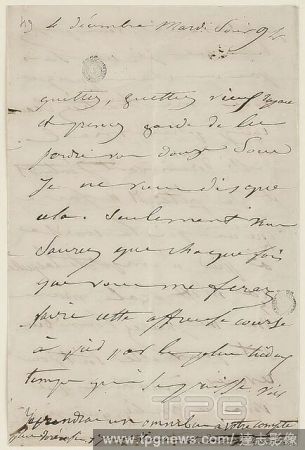 4 décembre Mardi Soir 9 h
guettez, guettez vieux
et prenez garde de
perdre son doux
Je ne vous dis que
cela. Seulement vous
saurez que chaque fois
que vous me ferez
faire cette affreuse course
à pied par le plus hideux
temps qui se puisse voir
Je prendrai un omnibus à votre compte
TPG
www.tpgnews.com/達志影像